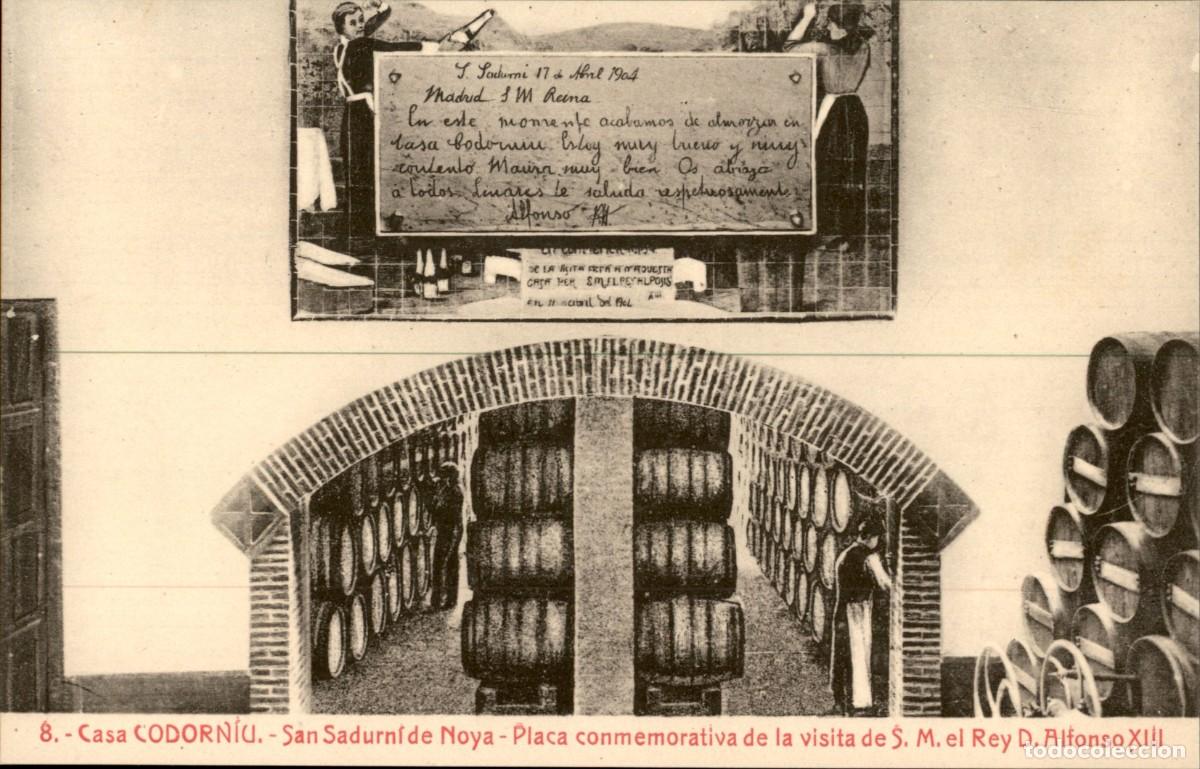 S. Sadurni 17 de Abril 1904
Madrid S M Reina
En este momente acabamos de almorzar en
casa Codorniu Estoy muy bueno y muy
contento Maura muy bien Os abraza
a todos Linares te saluda respetuosamente
Alfonso
DE LA
CASA PER S.M. EL REY ALFONS
XIII
en abril del 1904
6. - Casa CODORNÍU. - San Sadurní de Noya - Placa conmemorativa de la visita de S. M. el Rey D. Alfonso XIII
todocoleccion